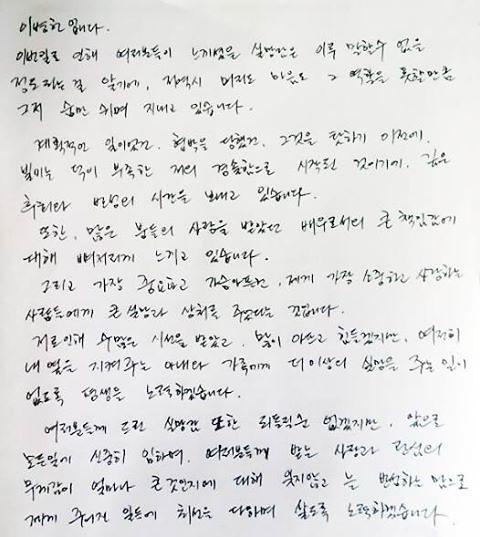 이병헌입니다.
이번일로 인해 여러분들이 느끼셨을 실망감은 이루 말할수 없을
정도라는걸 알기에, 저역시 머리도 마음도 그 역할을 못할만큼
그저 숨만 쉬며 지내고 있습니다.
계획적인 일이었건, 협박을 당했건, 그것을 탓하기 이전에,
빌미는 덕이 부족한 저의 경솔함으로 시작된 것이기에, 깊은
후회와 반성의 시간을 보내고 있습니다.
또한, 많은 분들의 사랑을 받았던 배우로서의 큰 책임감에
대해 뼈저리게 느끼고 있습니다.
그리고 가장 중요하고 가슴아프건, 제게 가장 소중하고 사랑하는
사람들에게 큰 실망과 상처를 주었다는 것입니다.
저로인해 수많은 시선을 받았고, 많이 아프고 힘든겠지만, 여전히
내 옆을 지켜주는 아내와 가족에게 더이상의 실망을 주는 일이
없도록 평생을 노력하겠습니다.
여러분들께 드린 실망감 또한 되돌릴순 없겠지만, 앞으로
모든일에 신중히 임하며, 여러분들께 받는 사랑과 관심의
무게감이 얼마나 큰것인지에 대해 잊지않고 늘 반성하는 맘으로
제게 주어진 일들에 최선을 다하며 살도록 노력하겠습니다.